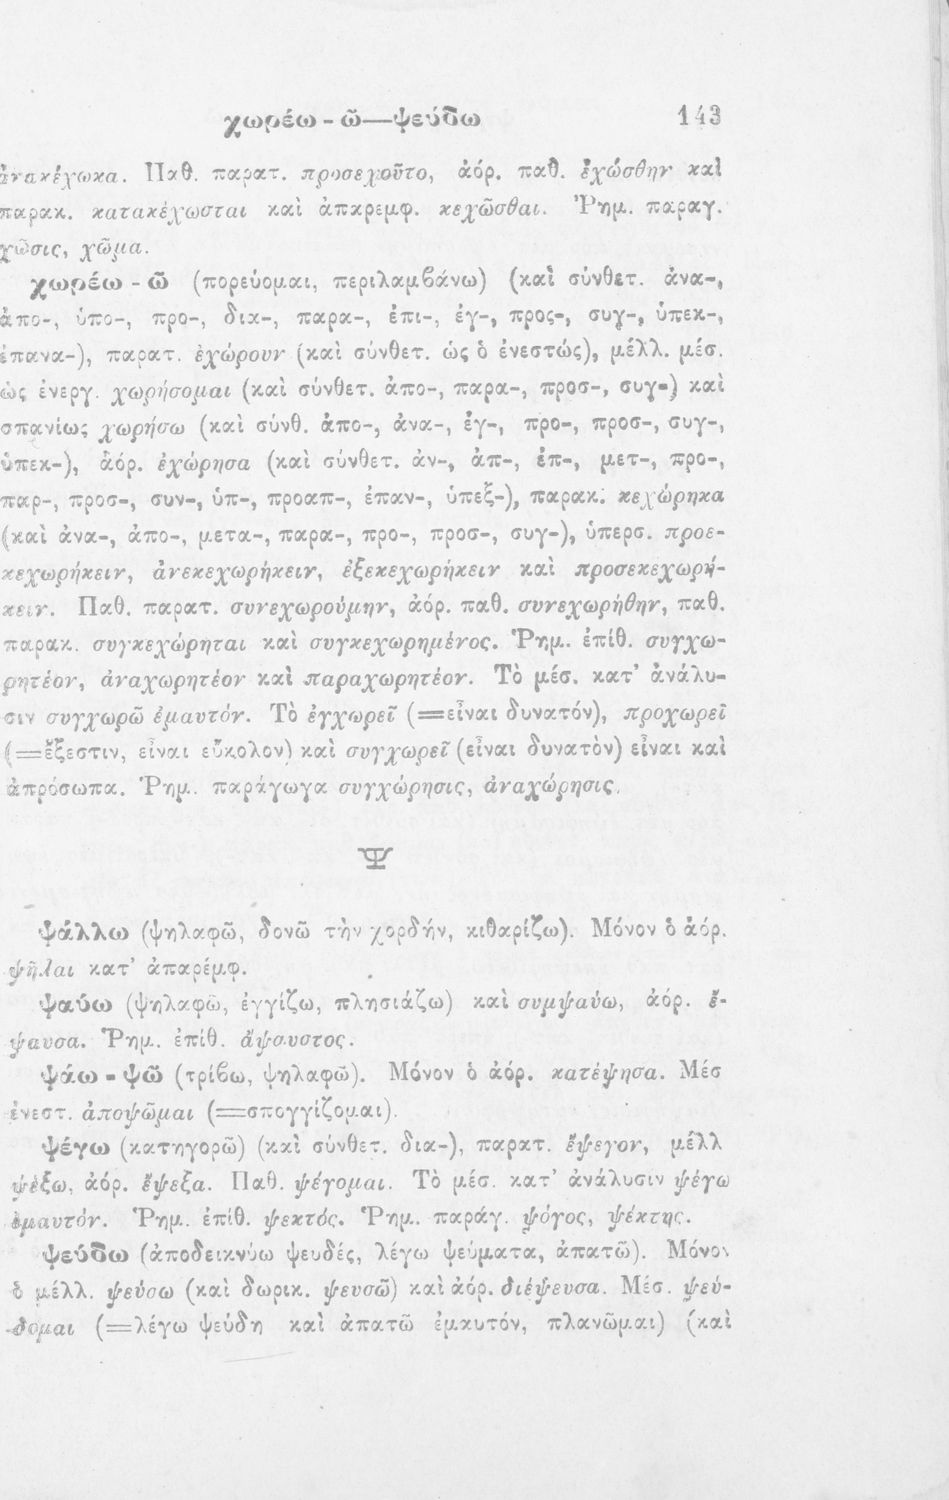 χωρέω - ῶ—ψεύδω 143
ἀνακέχωκα. Παθ. παρατ. προσεχοῦτο, ἀόρ. παθ. ἐχώσθην καὶ
παρακ. κατακέχωσται καὶ ἀπαρεμφ. κεχῶσθαι. Ῥημ. παραγ.
χῶσις, χῶμα.
χωρέω - ῶ (πορεύομαι, περιλαμβάνω) (καὶ σύνθετ. ἀνα-,
ἀπο-, ὑπο-, προ-, δια-, παρα-, ἐπι-, ἐγ-, προς-, συγ-, ὑπεκ-,
ἐπανα-), παρατ. ἐχώρουν (καὶ σύνθετ. ὡς ὁ ἐνεστώς), μέλλ. μέσ.
ὡς ἐνεργ. χωρήσομαι (καὶ σύνθετ. ἀπο-, παρα-, προσ-, συγ-) καὶ
σπανίως χωρήσω (καὶ σύνθ. ἀπο-, ἀνα-, ἐγ-, προ-, προσ-, συγ-,
ὑπεκ-), ἀόρ. ἐχώρησα (καὶ σύνθετ. ἀν-, ἀπ-, ἐπ-, μετ-, προ-,
παρ-, προσ-, συν-, ὑπ-, προαπ-, ἐπαν-, ὑπεξ-), παρακ. κεχώρηκα
(καὶ ἀνα-, ἀπο-, μετα-, παρα-, προ-, προσ-, συγ-), ὑπερσ. προε-
κεχωρήκειν, ἀνεκεχωρήκειν, ἐξεκεχωρήκειν καὶ προσεκεχωρή-
κειν. Παθ. παρατ. συνεχωρούμην, ἀόρ. παθ. συνεχωρήθην, παθ.
παρακ. συγκεχώρηται καὶ συγκεχωρημένος. Ῥημ. ἐπίθ. συγχω-
ρητέον, ἀναχωρητέον καὶ παραχωρητέον. Τὸ μέσ. κατ’ ἀνάλυ-
σιν συγχωρῶ ἐμαυτόν. Τὸ ἐγχωρεῖ (=εἶναι δυνατόν), προχωρεῖ
(=ἔξεστιν, εἶναι εὔκολον) καὶ συγχωρεῖ (εἶναι δυνατὸν) εἶναι καὶ
ἀπρόσωπα. Ῥημ. παράγωγα συγχώρησις, ἀναχώρησις.
Ψ
ψάλλω (ψηλαφῶ, δονῶ τὴν χορδήν, κιθαρίζω). Μόνον ὁ ἀόρ.
ψῆλαι κατ’ ἀπαρέμφ.
ψαύω (ψηλαφῶ, ἐγγίζω, πλησιάζω) καὶ συμψαύω, ἀόρ. ἔ-
ψαυσα. Ῥημ. ἐπίθ. ἄψαυστος.
ψάω - ψῶ (τρίβω, ψηλαφῶ). Μόνον ὁ ἀόρ. κατέψησα. Μέσ
ἐνεστ. ἀποψῶμαι (=σπογγίζομαι).
ψέγω (κατηγορῶ) (καὶ σύνθετ. δια-), παρατ. ἔψεγον, μέλλ
ψέξω, ἀόρ. ἔψεξα. Παθ. ψέγομαι. Τὸ μέσ. κατ’ ἀνάλυσιν ψέγω
ἐμαυτόν. Ῥημ. ἐπίθ. ψεκτός. Ῥημ. παράγ. ψόγος, ψέκτης.
ψεύδω (ἀποδεικνύω ψευδές, λέγω ψεύματα, ἀπατῶ). Μόνον
ὁ μέλλ. ψεύσω (καὶ δωρικ. ψευσῶ) καὶ ἀόρ. διέψευσα. Μέσ. ψεύ-
δομαι (=λέγω ψεύδη καὶ ἀπατῶ ἐμαυτόν, πλανῶμαι) (καὶ